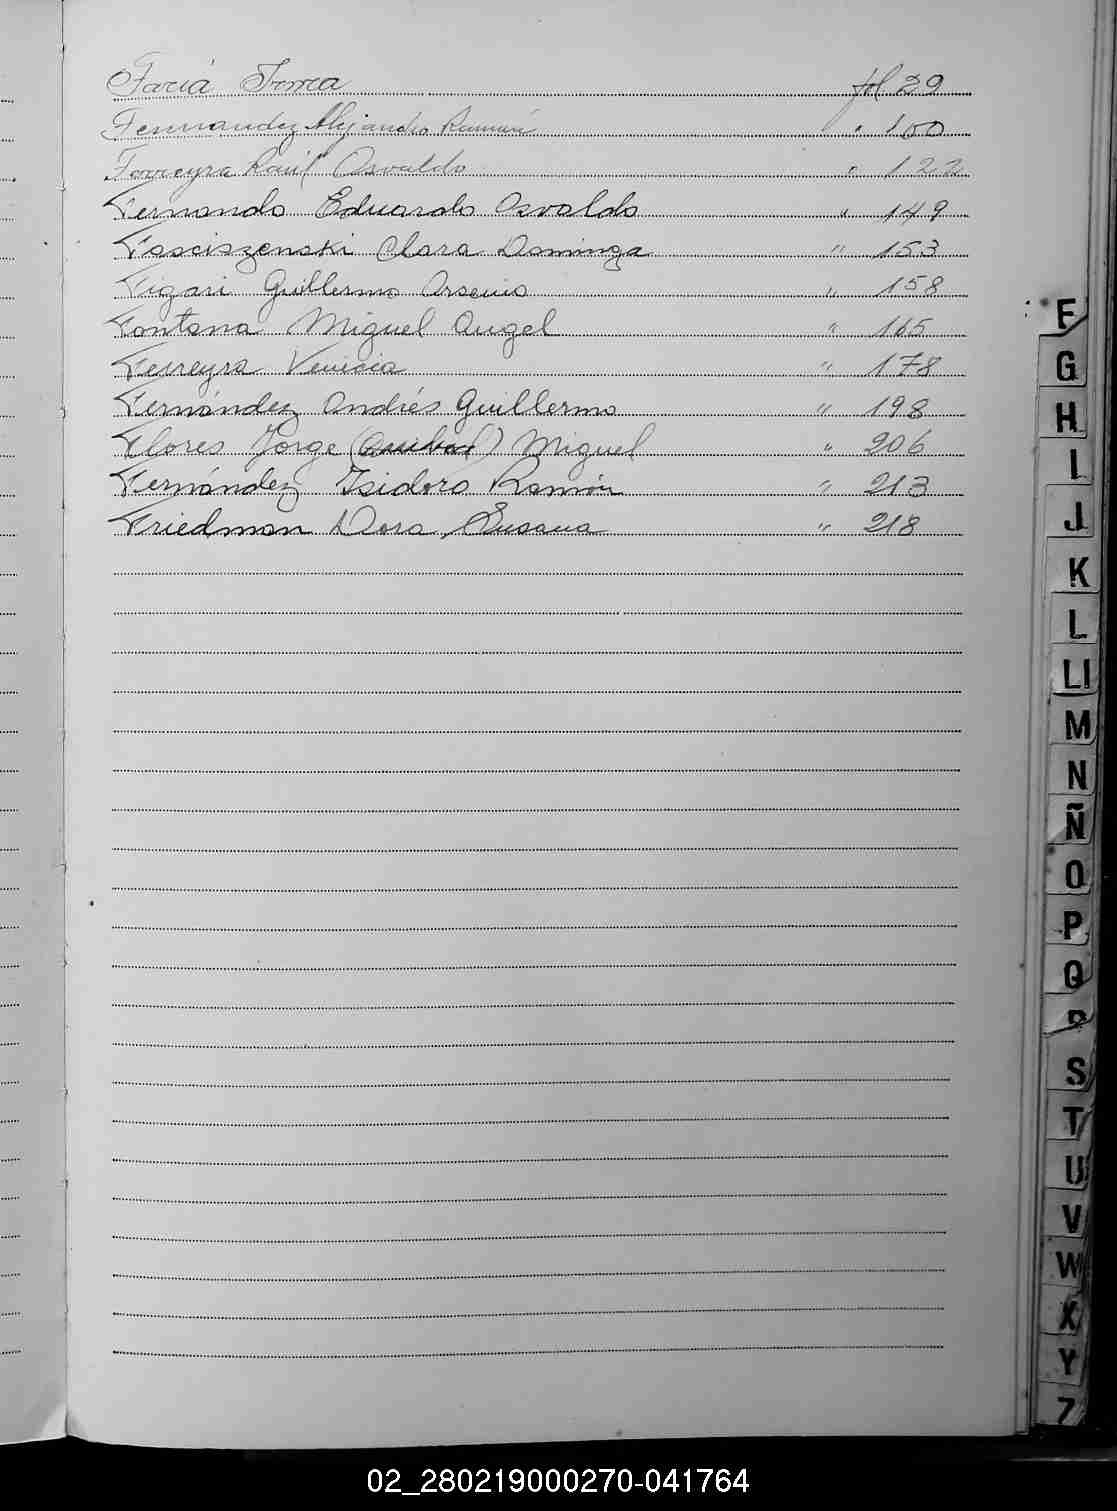 Fariá Irma fol 29
Fernandez Alejandro Ramón " 100
Ferreyra Raúl Osvaldo " 122
Fernando Eduardo Osvaldo " 149
Fasciszenski Clara Dominga " 153
Figari Guillermo Arsenio " 158
Fontana Miguel Angel " 165
Ferreyra Venicia " 178
Fernández Andrés Guillermo " 198
Flores Jorge ( ) Miguel " 206
Fernández Isidoro Ramón " 213
Friedman Dora Susana " 218
F
G
H
I
J
K
L
Ll
M
N
Ñ
O
P
Q
R
S
T
U
V
W
X
Y
Z
02_280219000270-041764